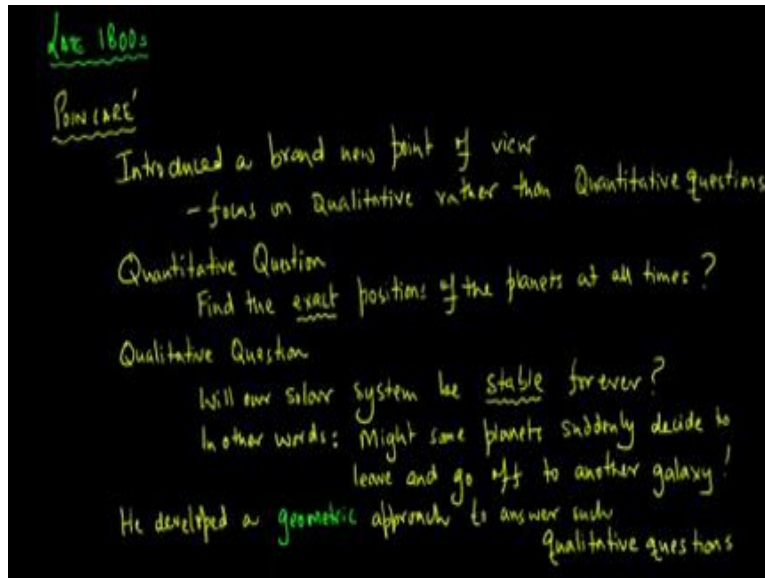 LATE 1800s
POINCARE'
Introduced a brand new point of view
- focus on Qualitative rather than Quantitative questions
Quantitative Question
Find the exact positions of the planets at all times?
Qualitative Question
Will our solar system be stable forever?
In other words: Might some planets suddenly decide to
leave and go off to another galaxy!
He developed a geometric approach to answer such
qualitative questions